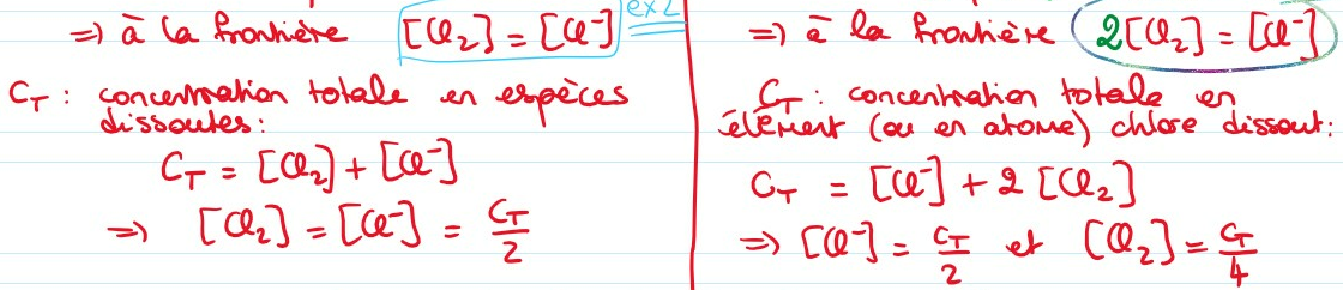 => à la frontière [Cl₂] = [Cl⁻] ex 2
C_T : concentration totale en espèces
dissoutes :
C_T = [Cl₂] + [Cl⁻]
=> [Cl₂] = [Cl⁻] = C_T/2
=> à la frontière 2[Cl₂] = [Cl⁻]
C_T : concentration totale en
élément (ou en atome) chlore dissout :
C_T = [Cl⁻] + 2 [Cl₂]
=> [Cl⁻] = C_T/2 et [Cl₂] = C_T/4